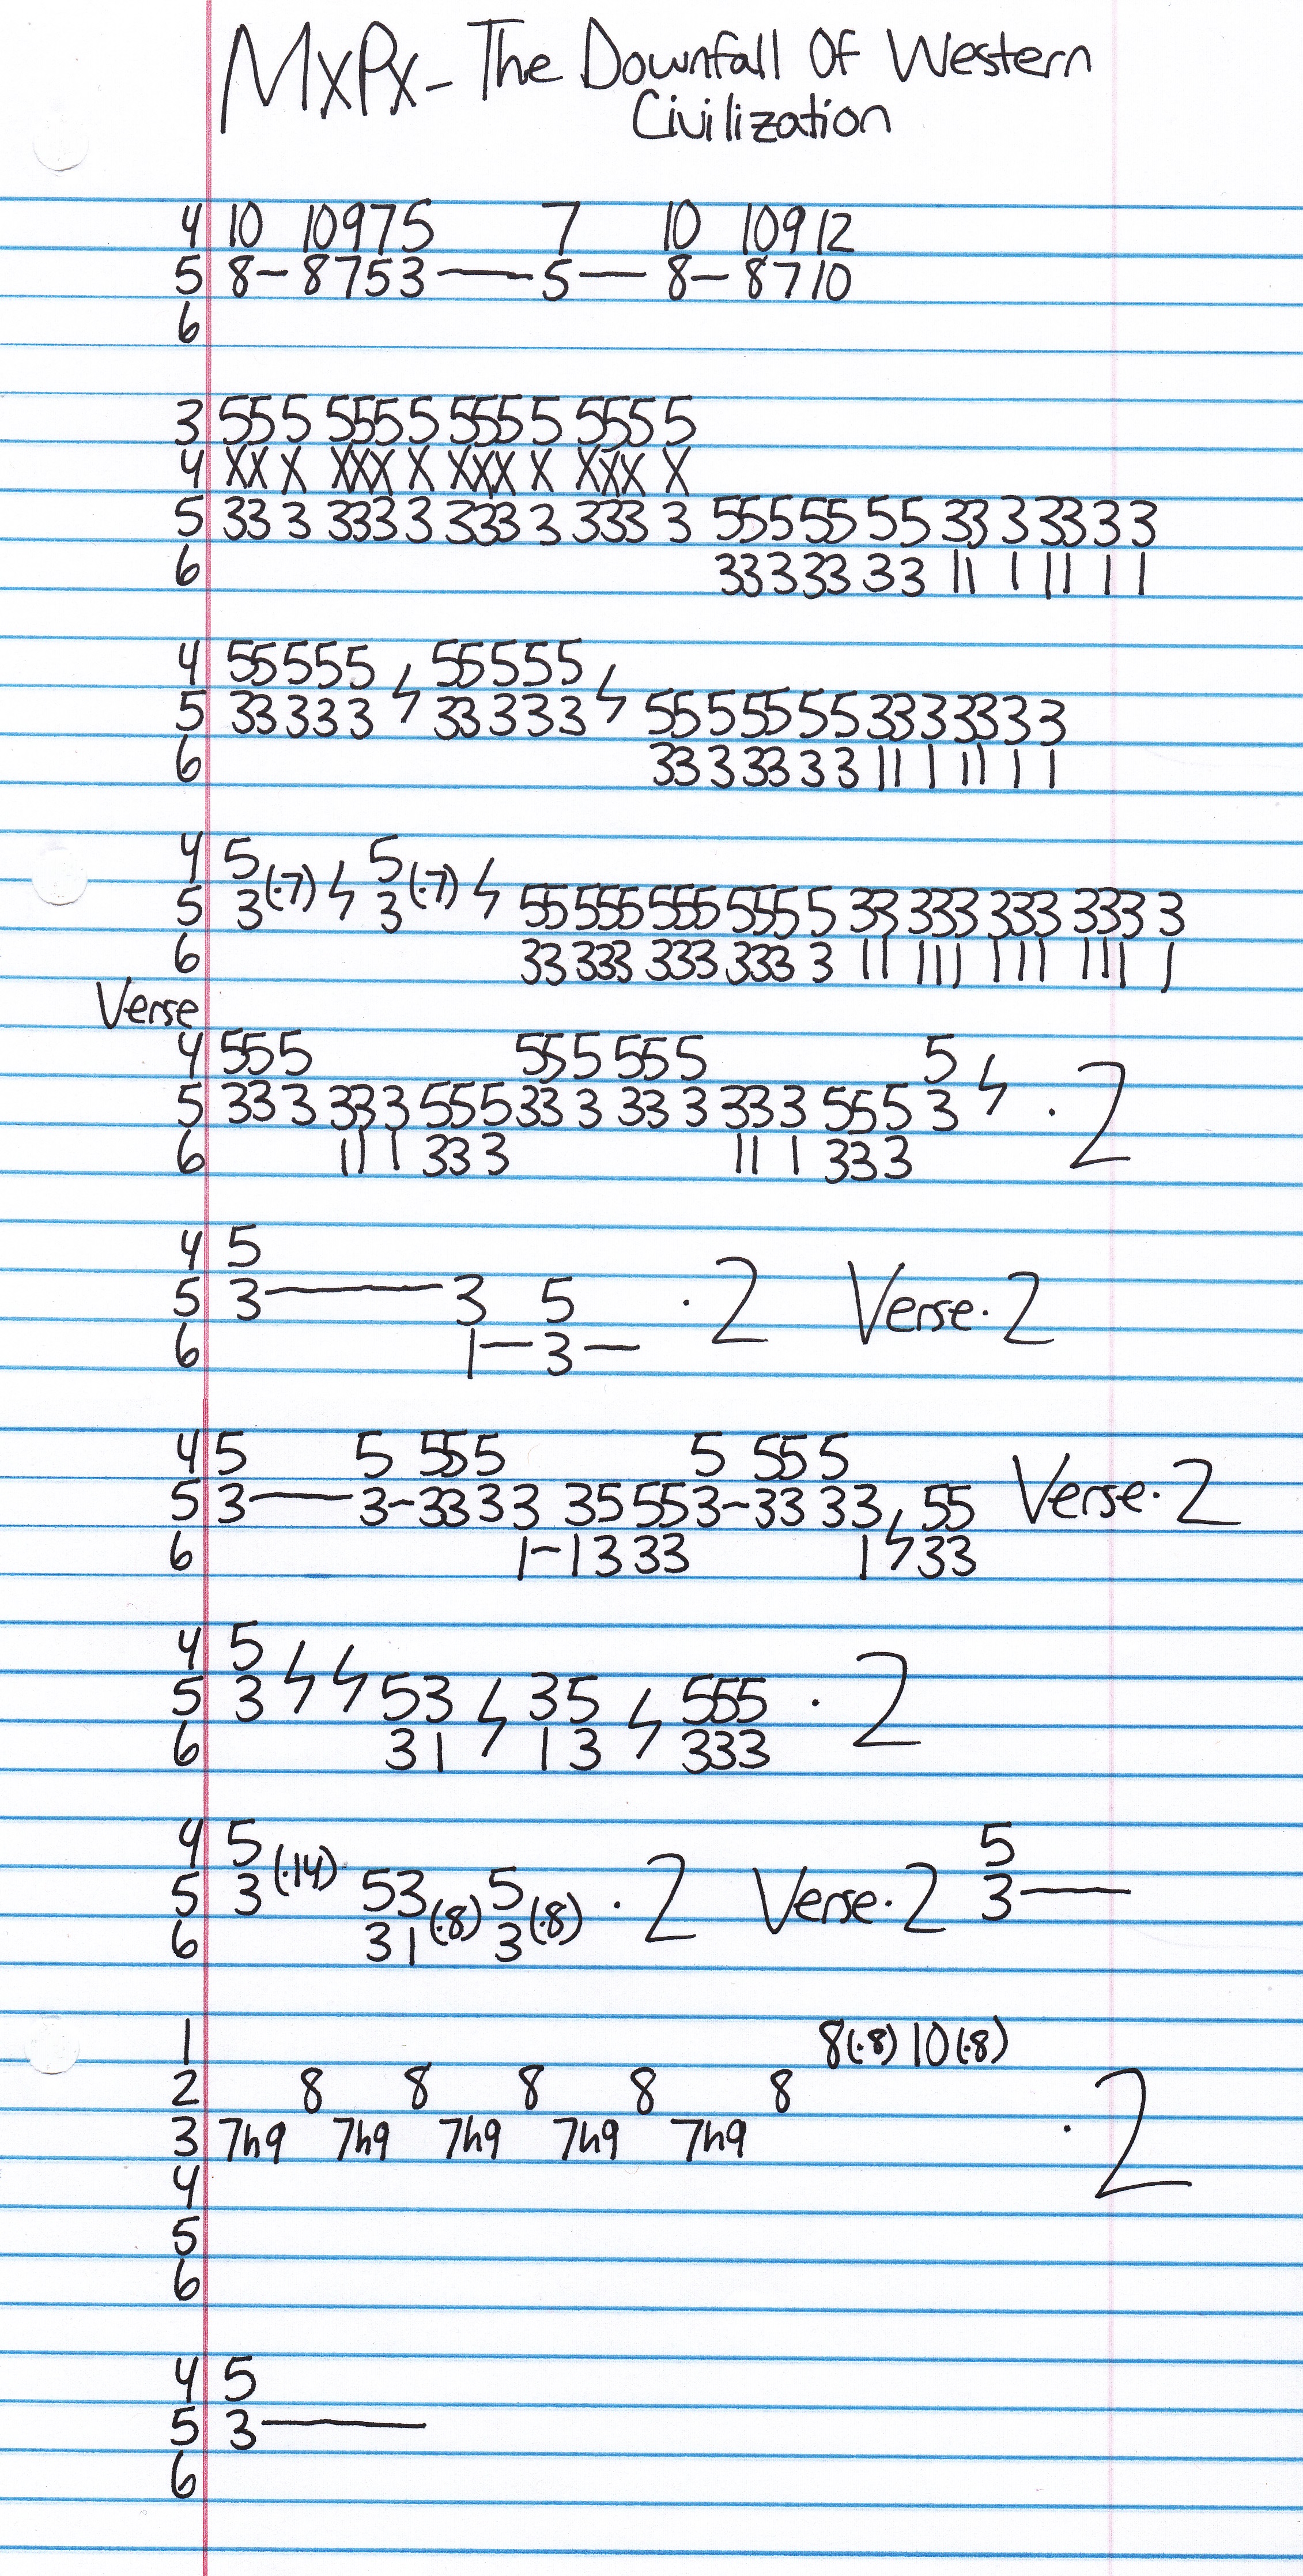 MxPx - The Downfall Of Western
Civilization
4 10 10975 7 10 10912
5 8- 8753 — 5 — 8- 8710
6
3 555 5555 5555 5555
4 XXX XXXX XXXX XXXX
5 333 3333 3333 3333 5555555 3333333
6 3333333 1111111
4 55555 ϟ 55555 ϟ
5 33333 33333 5555555 3333333
6 3333333 1111111
4 5 5
5 3(·7) ϟ 3(·7) ϟ 55 555 555 5555 33 333 333 3333
6 33 333 333 3333 11 111 111 1111
Verse
4 555 555 555 5
5 333 333 555 333 333 333 555 3 ϟ · 2
6 111 333 111 333
4 5
5 3 — 3 5 · 2 Verse · 2
6 1 — 3 —
4 5 5 555 5 555
5 3 — 3-3333 35553-3333 ϟ 55 Verse · 2
6 1-1333 1 33
4 5
5 3 ϟ ϟ 53 ϟ 35 ϟ 555 · 2
6 31 13 333
4 5 5
5 3(·14) 53 5 · 2 Verse · 2 3 —
6 31(·8) 3(·8)
1 8(·8) 10(·8)
2 8 8 8 8 8
3 7h9 7h9 7h9 7h9 7h9 · 2
4
5
6
4 5
5 3 —
6